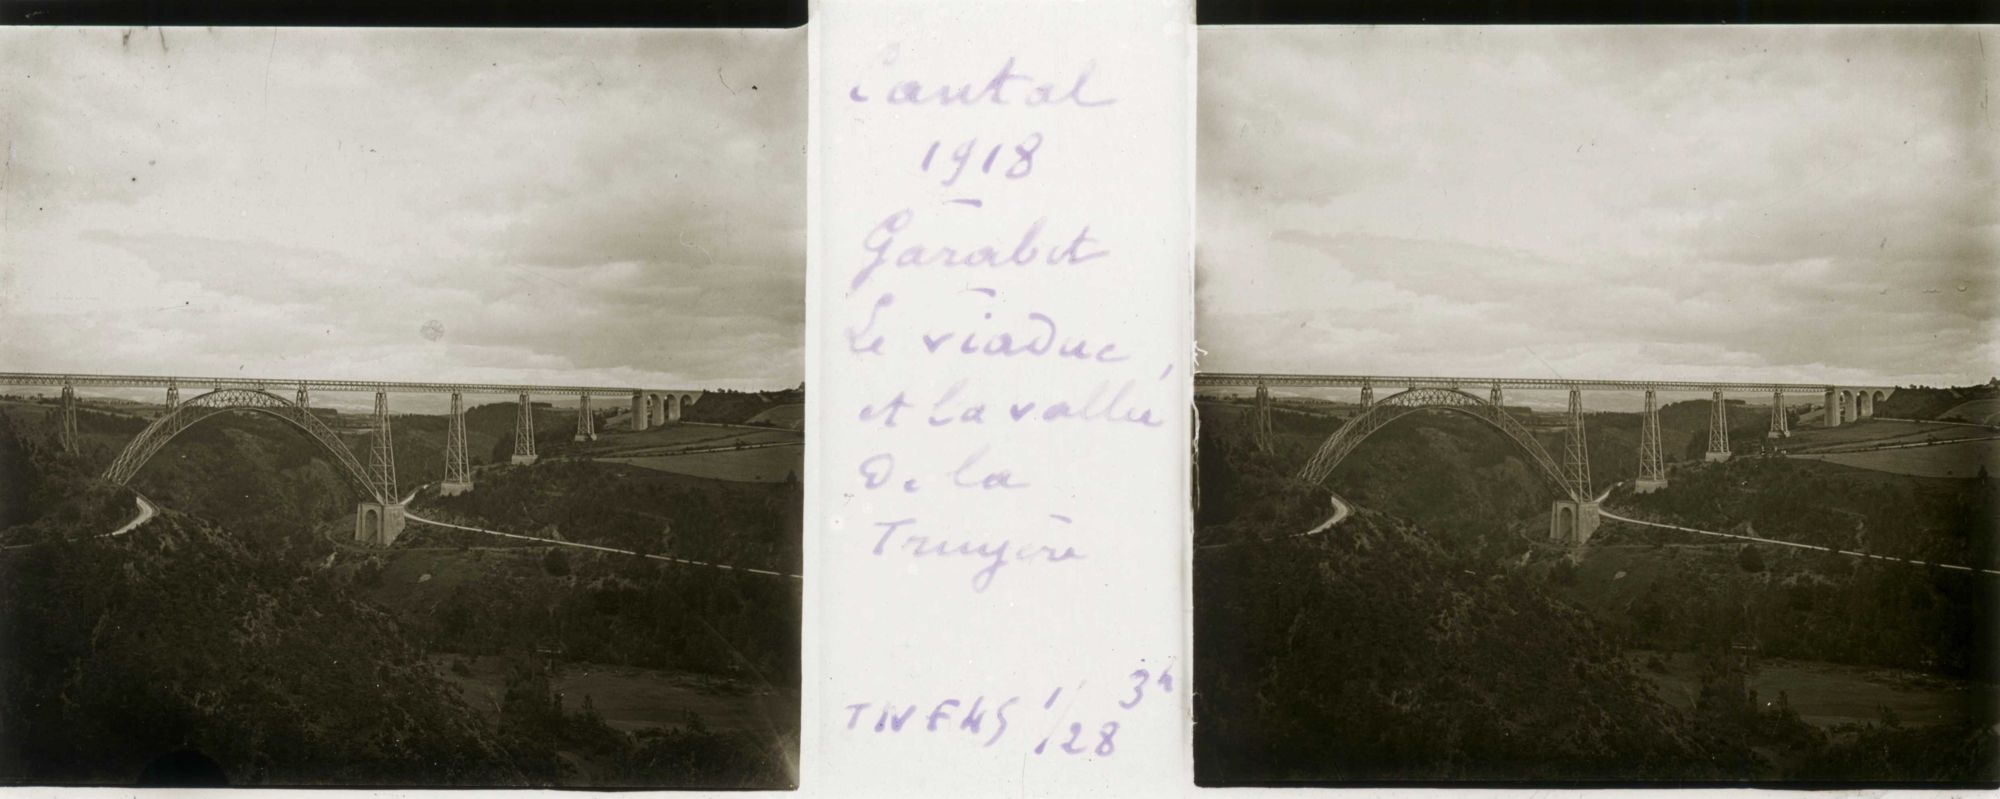 Cantal
1918
Garabit
Le viaduc
et la vallée
de la
Truyère
3h
1/28